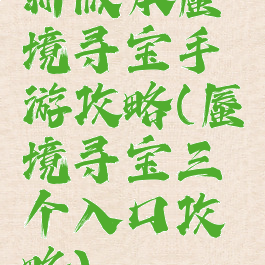 新版本蜃
境寻宝手
游攻略(蜃
境寻宝三
个入口攻
略)